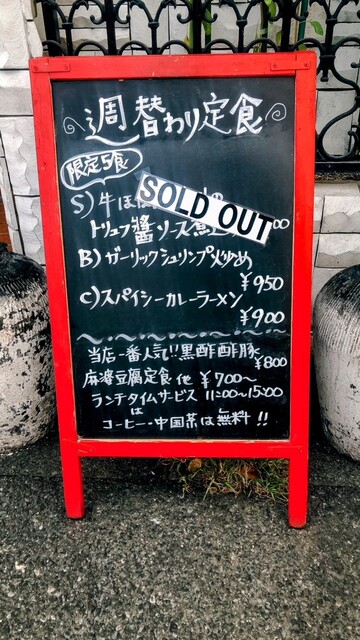 週替わり定食
限定5食
S) 牛ほ
SOLD OUT
トリュフ醬ソース煮
B) ガーリックシュリンプ炒め
¥950
C) スパイシーカレーラーメン
¥900
当店一番人気!!黒酢酢豚
¥800
麻婆豆腐定食 他 ¥700〜
ランチタイムサービス 11:00〜15:00
は
コーヒー・中国茶は無料!!